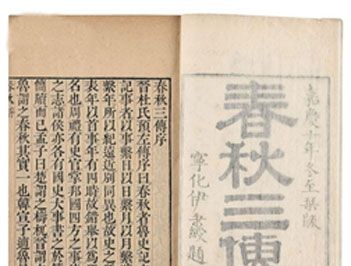 嘉慶十年冬至栞版
春秋三傳
寧化伊秉綬題
春秋三傳序
晉杜氏預左傳序曰春秋者魯史記
記事者以事繫日以日繫月以月繫
繫年所以紀遠近別同異也故史之
表年以首事年有四時故錯舉以爲
名也周禮有史官掌邦國四方之事
之志諸侯亦各有國史大事書之於
簡牘而已孟子曰楚謂之檮杌晉謂
魯謂之春秋其實一也韓宣子適魯